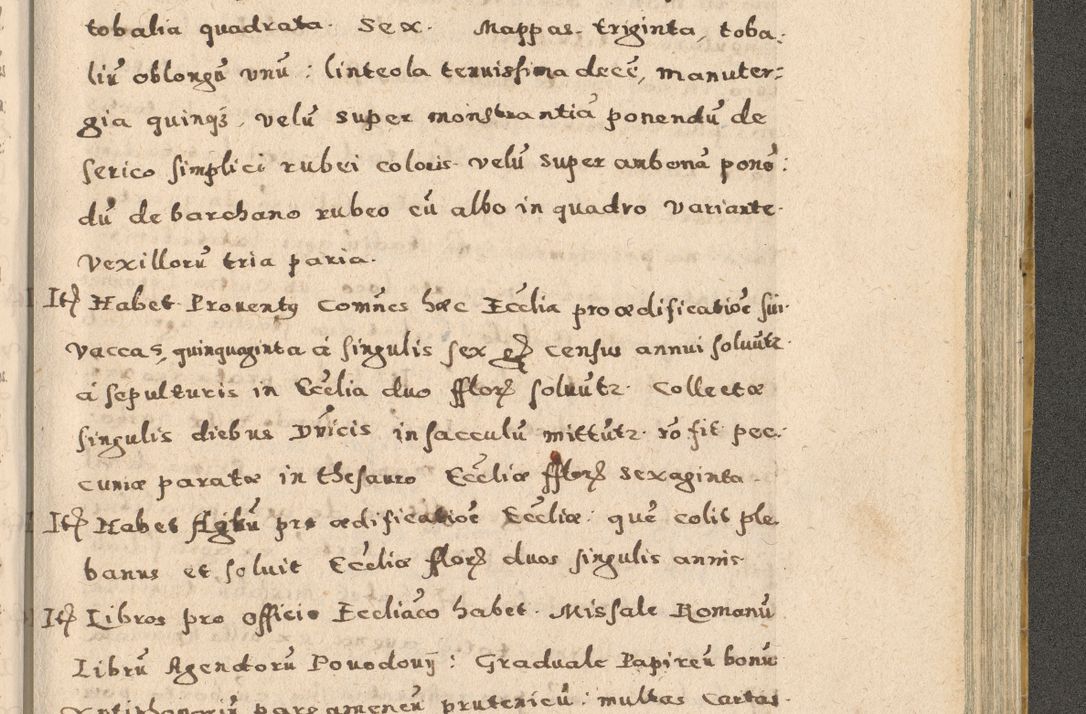 tobalia quadrata. Sex. Mappas. triginta, toba:
liū oblongū vnū : linteola tenuissima decē, manuter:
gia quinqȝ, velū super monstrantiā ponendū de
serico simplici rubei coloris. velū super ambonā ponē:
dū de barchano rubeo cū albo in quadro variante.
Vexillorū tria paria.
Itē Habet Prouentꝯ comūes hæc Ecclīa pro ædificatiōe sui.
vaccas, quinquaginta á singulis sex census annui soluūtr.
á sepulturis in Ecclīa duo fflorē soluūtr. Collectæ
singulis diebus Dnīcis in sacculū mittūtr. rō fit pec:
cuniæ paratæ in thesauro Ecclīæ fflorē sexaginta.
Itē Habet Agrū pro ædificatiōe Ecclīæ : quē colit ple
banus et soluit Ecclīæ fflorē duos singulis annis.
Itē Libros pro officio Eccliāco habet. Missale Romanū
Librū Agendorū Pouodouij : Graduale Papireū bonū
Antiphonariū pargameneū prutenicū : multas Cartas.